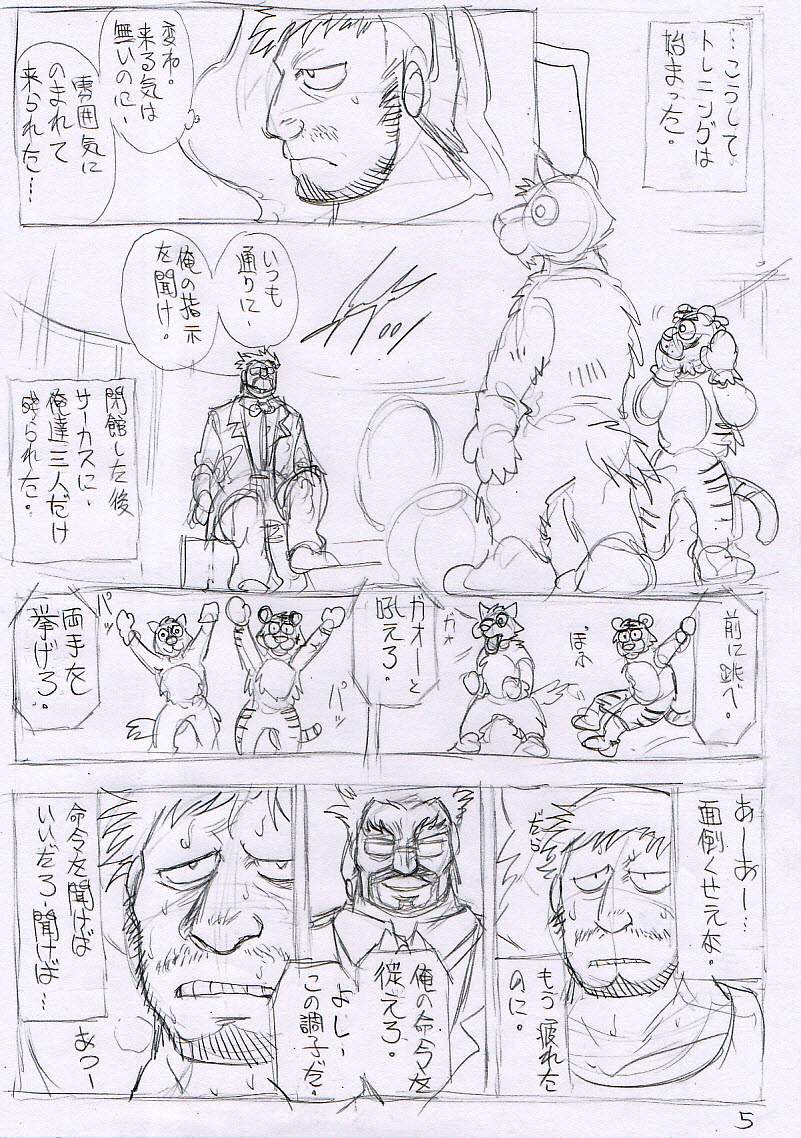 …こうして
トレニングは
始まった。
変わ。
来る気は
無いのに、
雰囲気に
のまれて
来られた…
いつも
通りに、
俺の指示
を聞け。
閉館した後
サーカスに、
俺達三人だけ
残られた。
前に跳べ。
ガオーと
吼えろ。
ガオ
両手を
挙げろ。
パッ
パッ
あーあー…
面倒くせえな。
もう疲れた
のに。
だら
俺の命令を
従えろ。
よしー
この調子だ。
命令を聞けば
いいだろー聞けば…
あつー
5